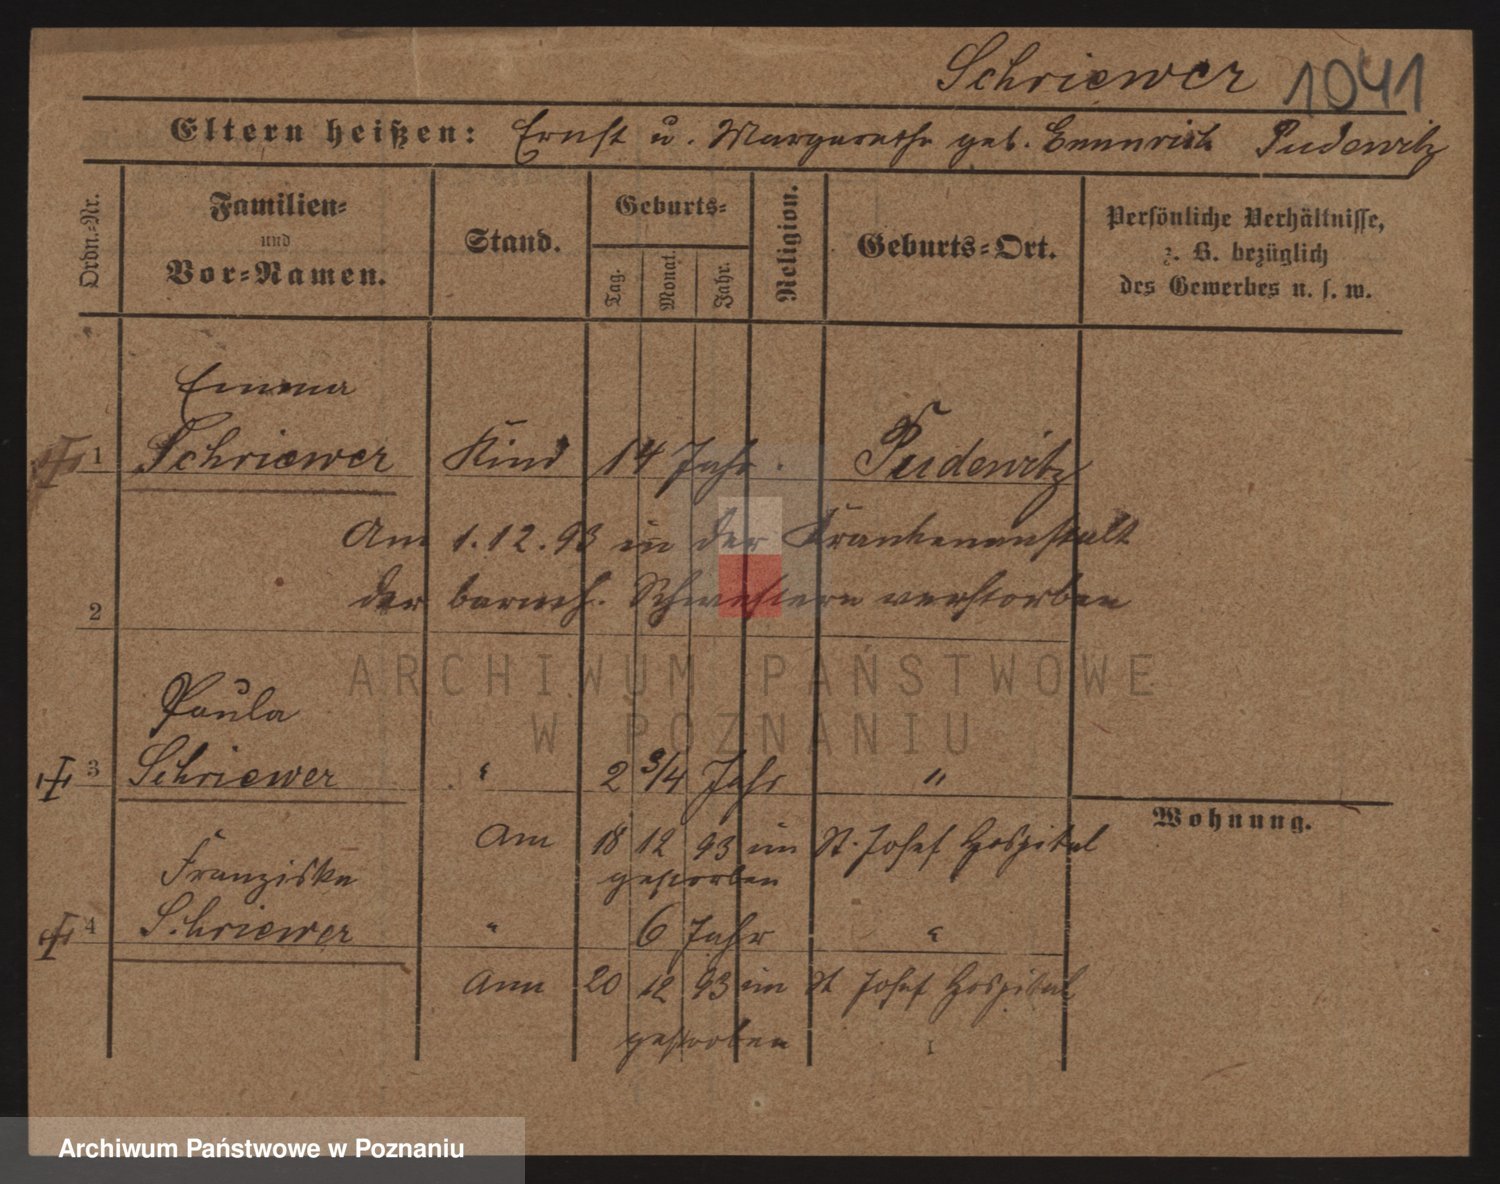 Schriewer 1041
Eltern heißen: Ernst u. Margarethe geb. Pudewitz
Ordn.-Nr.
Familien-
und
Vor-Namen.
Stand.
Geburts-
Tag.
Monat.
Jahr.
Religion.
Geburts-Ort.
Persönliche Verhältnisse,
z. B. bezüglich
des Gewerbes u. s. w.
Emma
1 Schriewer Kind 14 Jahr. Pudewitz
Am 1.12.93 in der Krankenanstalt
2 der barmh. Schwestern verstorben
ARCHIWUM PAŃSTWOWE
W POZNANIU
Paula
3 Schriewer " 2 3/4 Jahr "
Wohnung.
Am 18 12 93 im St. Josef Hospital
gestorben
Franziska
4 Schriewer " 6 Jahr "
Am 20 12 93 im St Josef Hospital
gestorben
Archiwum Państwowe w Poznaniu